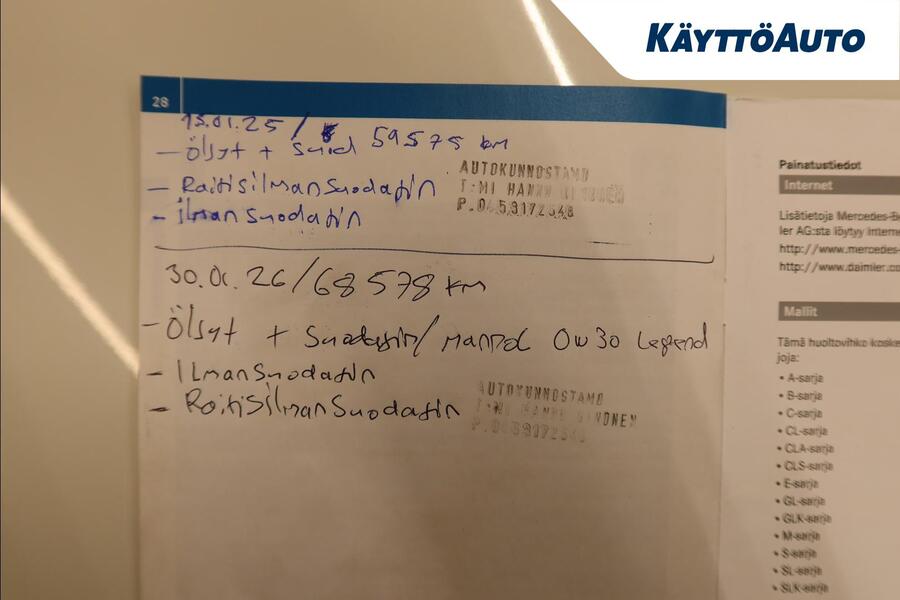 KÄYTTÖAUTO
28
13.01.25 / 59575 km
- Öljyt + Suod
- Raitisilmansuodatin
- ilmansuodatin
AUTOKUNNOSTAMO
T:MI HANNU
P.0453172548
30.01.26/68578 km
- Öljyt + Suodatin/mannol 0w30 Legend
- Ilmansuodatin
- Raitisilmansuodatin
AUTOKUNNOSTAMO
T:MI HANNU
P.0453172548
Painatustiedot
Internet
Lisätietoja Mercedes-Be
ler AG:sta löytyy Interne
http://www.mercedes-
http://www.daimler.co
Mallit
Tämä huoltovihko koske
joja:
• A-sarja
• B-sarja
• C-sarja
• CL-sarja
• CLA-sarja
• CLS-sarja
• E-sarja
• GL-sarja
• GLK-sarja
• M-sarja
• S-sarja
• SL-sarja
• SLK-sarja